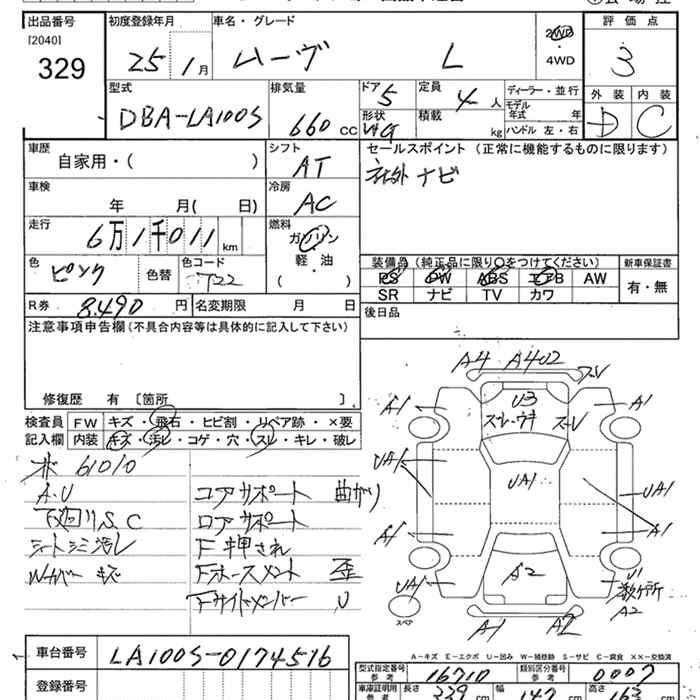 出品番号 初度登録年月 車名・グレード 2WD 評価点
[2040]
329 25 1月 ムーヴ L 4WD 3
型式 排気量 ドア 5 定員 4人 ディーラー・並行 外装 内装
DBA-LA100S 660 CC 形状 積載 kg モデル年式 年 D C
ハンドル 左・右
車歴 シフト セールスポイント (正常に機能するものに限ります)
自家用・( ) AT 社外 ナビ
車検 冷房
年 月( 日) AC
走行 燃料
6万1千011 km ガソリン
軽・油
( )
色 色コード 装備品 (純正品に限り○をつけてください) 新車保証書
ピンク 色替 T22 PS PW ABS エアB AW 有・無
SR ナビ TV カワ
R券 8,490 円 名変期限 月 日 後日品
注意事項申告欄(不具合内容等は具体的に記入して下さい)
修復歴 有 〔箇所 〕
検査員 FW キズ・飛石・ヒビ割・リペア跡・×要
記入欄 内装 キズ・汚レ・コゲ・穴・スレ・キレ・破レ
61010
A.U コアサポート 曲がり
下廻りS.C ロアサポート
シートシミ汚レ F 押され
Wカバー キズ Fホースメント 歪
FサイドメンバーU
A4 A402
A1 U3 A1
UA1 UA1 UA1
A1 A1
UA1 A2 U1
数ヶ所
A2
スペア
A1 A2
A-キズ E-エクボ U-凹み W-補修跡 S-サビ C-腐食 XX-交換済
車台番号 LA100S-0174516 型式指定番号 参考 16710 類別区分番号 参考 0007
登録番号 車庫証明用 参考 長さ 339 cm 幅 147 cm 高さ 163 cm